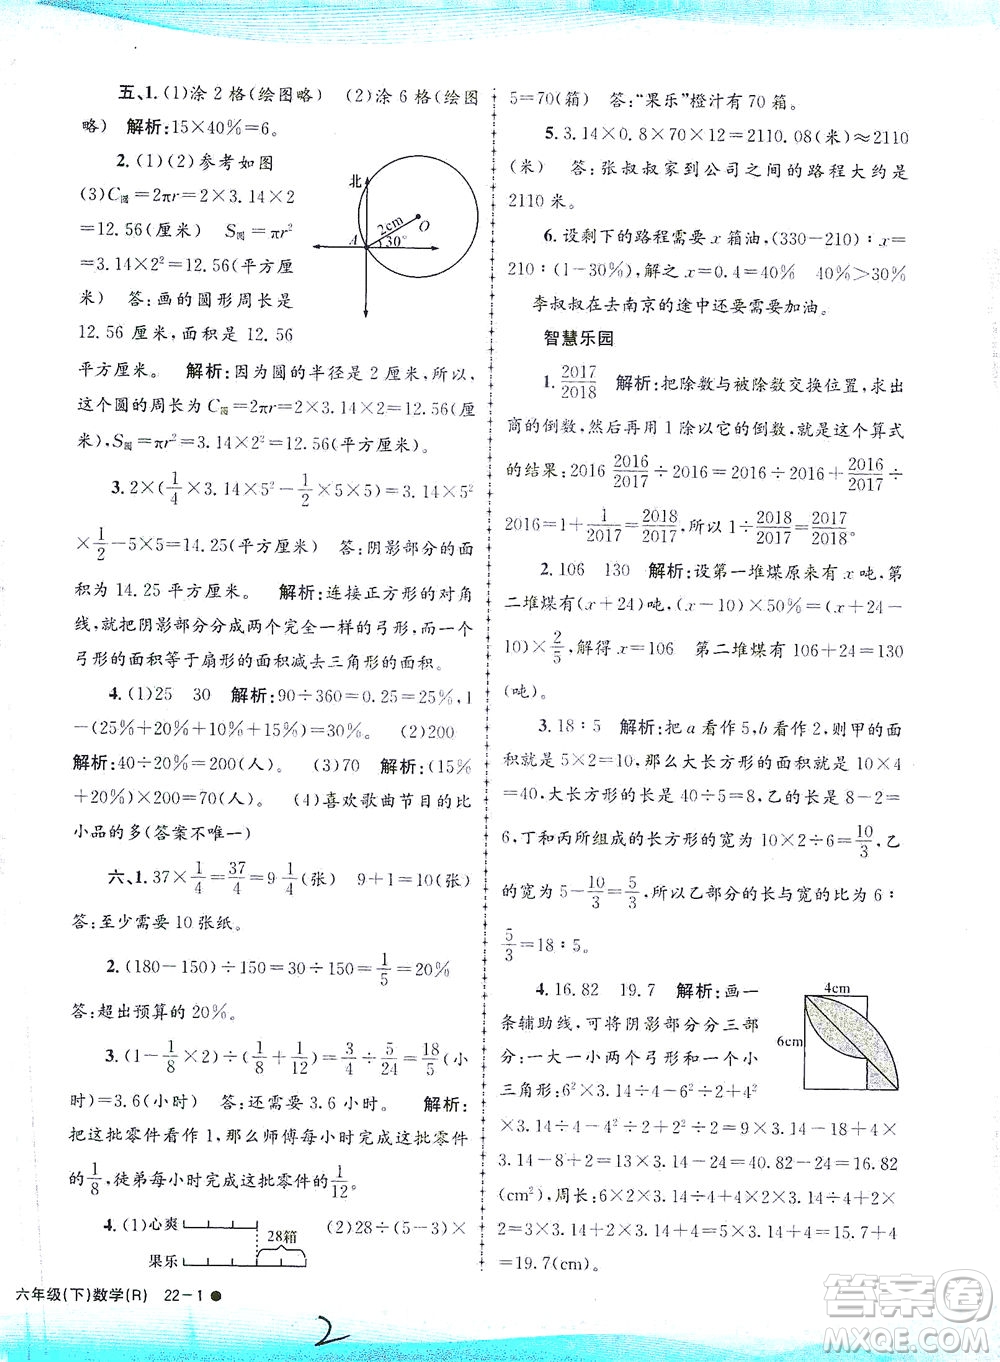 五、1.(1)涂 2 格(绘图略) (2)涂 6 格(绘图
略) 解析:15×40%=6。
2.(1)(2)参考如图
(3)C圆=2πr=2×3.14×2
=12.56(厘米) S圆=πr²
=3.14×2²=12.56(平方厘
米) 答:画的圆形周长是
12.56 厘米,面积是 12.56
北
2cm
O
A
30°
平方厘米。 解析:因为圆的半径是 2 厘米,所以,
这个圆的周长为 C圆=2πr=2×3.14×2=12.56(厘
米),S圆=πr²=3.14×2²=12.56(平方厘米)。
3.2×(1/4×3.14×5²-1/2×5×5)=3.14×5²
×1/2-5×5=14.25(平方厘米) 答:阴影部分的面
积为 14.25 平方厘米。 解析:连接正方形的对角
线,就把阴影部分分成两个完全一样的弓形,而一个
弓形的面积等于扇形的面积减去三角形的面积。
4.(1)25 30 解析:90÷360=0.25=25%,1
-(25%+20%+10%+15%)=30% (2)200
解析:40÷20%=200(人)。 (3)70 解析:(15%
+20%)×200=70(人)。 (4)喜欢歌曲节目的比
小品的多(答案不唯一)
六、1.37×1/4=37/4=9 1/4(张) 9+1=10(张)
答:至少需要 10 张纸。
2.(180-150)÷150=30÷150=1/5=20%
答:超出预算的 20%。
3.(1-1/8×2)÷(1/8+1/12)=3/4÷5/24=18/5(小
时)=3.6(小时) 答:还需要 3.6 小时。 解析:
把这批零件看作 1,那么师傅每小时完成这批零件
的1/8,徒弟每小时完成这批零件的1/12。
4.(1)心爽 (2)28÷(5-3)×
28箱
果乐
5=70(箱) 答:“果乐”橙汁有 70 箱。
5.3.14×0.8×70×12=2110.08(米)≈2110
(米) 答:张叔叔家到公司之间的路程大约是
2110 米。
6.设剩下的路程需要 x 箱油,(330-210)∶x=
210∶(1-30%),解之 x=0.4=40% 40%>30%
李叔叔在去南京的途中还要需要加油。
智慧乐园
1.2017/2018 解析:把除数与被除数交换位置,求出
商的倒数,然后再用 1 除以它的倒数,就是这个算式
的结果:2016 2016/2017÷2016=2016÷2016+2016/2017÷
2016=1+1/2017=2018/2017,所以 1÷2018/2017=2017/2018。
2.106 130 解析:设第一堆煤原来有 x 吨,第
二堆煤有(x+24)吨,(x-10)×50%=(x+24-
10)×2/5,解得:x=106 第二堆煤有 106+24=130
(吨)。
3.18∶5 解析:把 a 看作 5,b 看作 2,则甲的面
积就是 5×2=10,那么大长方形的面积是 10×4
=40,大长方形的长是 40÷5=8,乙的长是 8-2=
6,丁和丙所组成的长方形的宽为 10×2÷6=10/3,乙
的宽为 5-10/3=5/3,所以乙部分的长与宽的比为 6∶
5/3=18∶5。
4.16.82 19.7 解析:画一
条辅助线,可将阴影部分分三部
分:一大一小两个弓形和一个小
三角形:6²×3.14÷4-6²÷2+4²
4cm
6cm
×3.14÷4-4²÷2+(6-4)×4÷2=9×3.14-18+4
×3.14-8+4=13×3.14-22=40.82-24=16.82
(cm²),周长:6×2×3.14÷4+4×2×3.14÷4+2×
2=3×3.14+2×3.14+4=5×3.14+4=15.7+4
=19.7(cm)。
六年级(下)数学(R) 22-1
2
答案圈
MXQE.COM